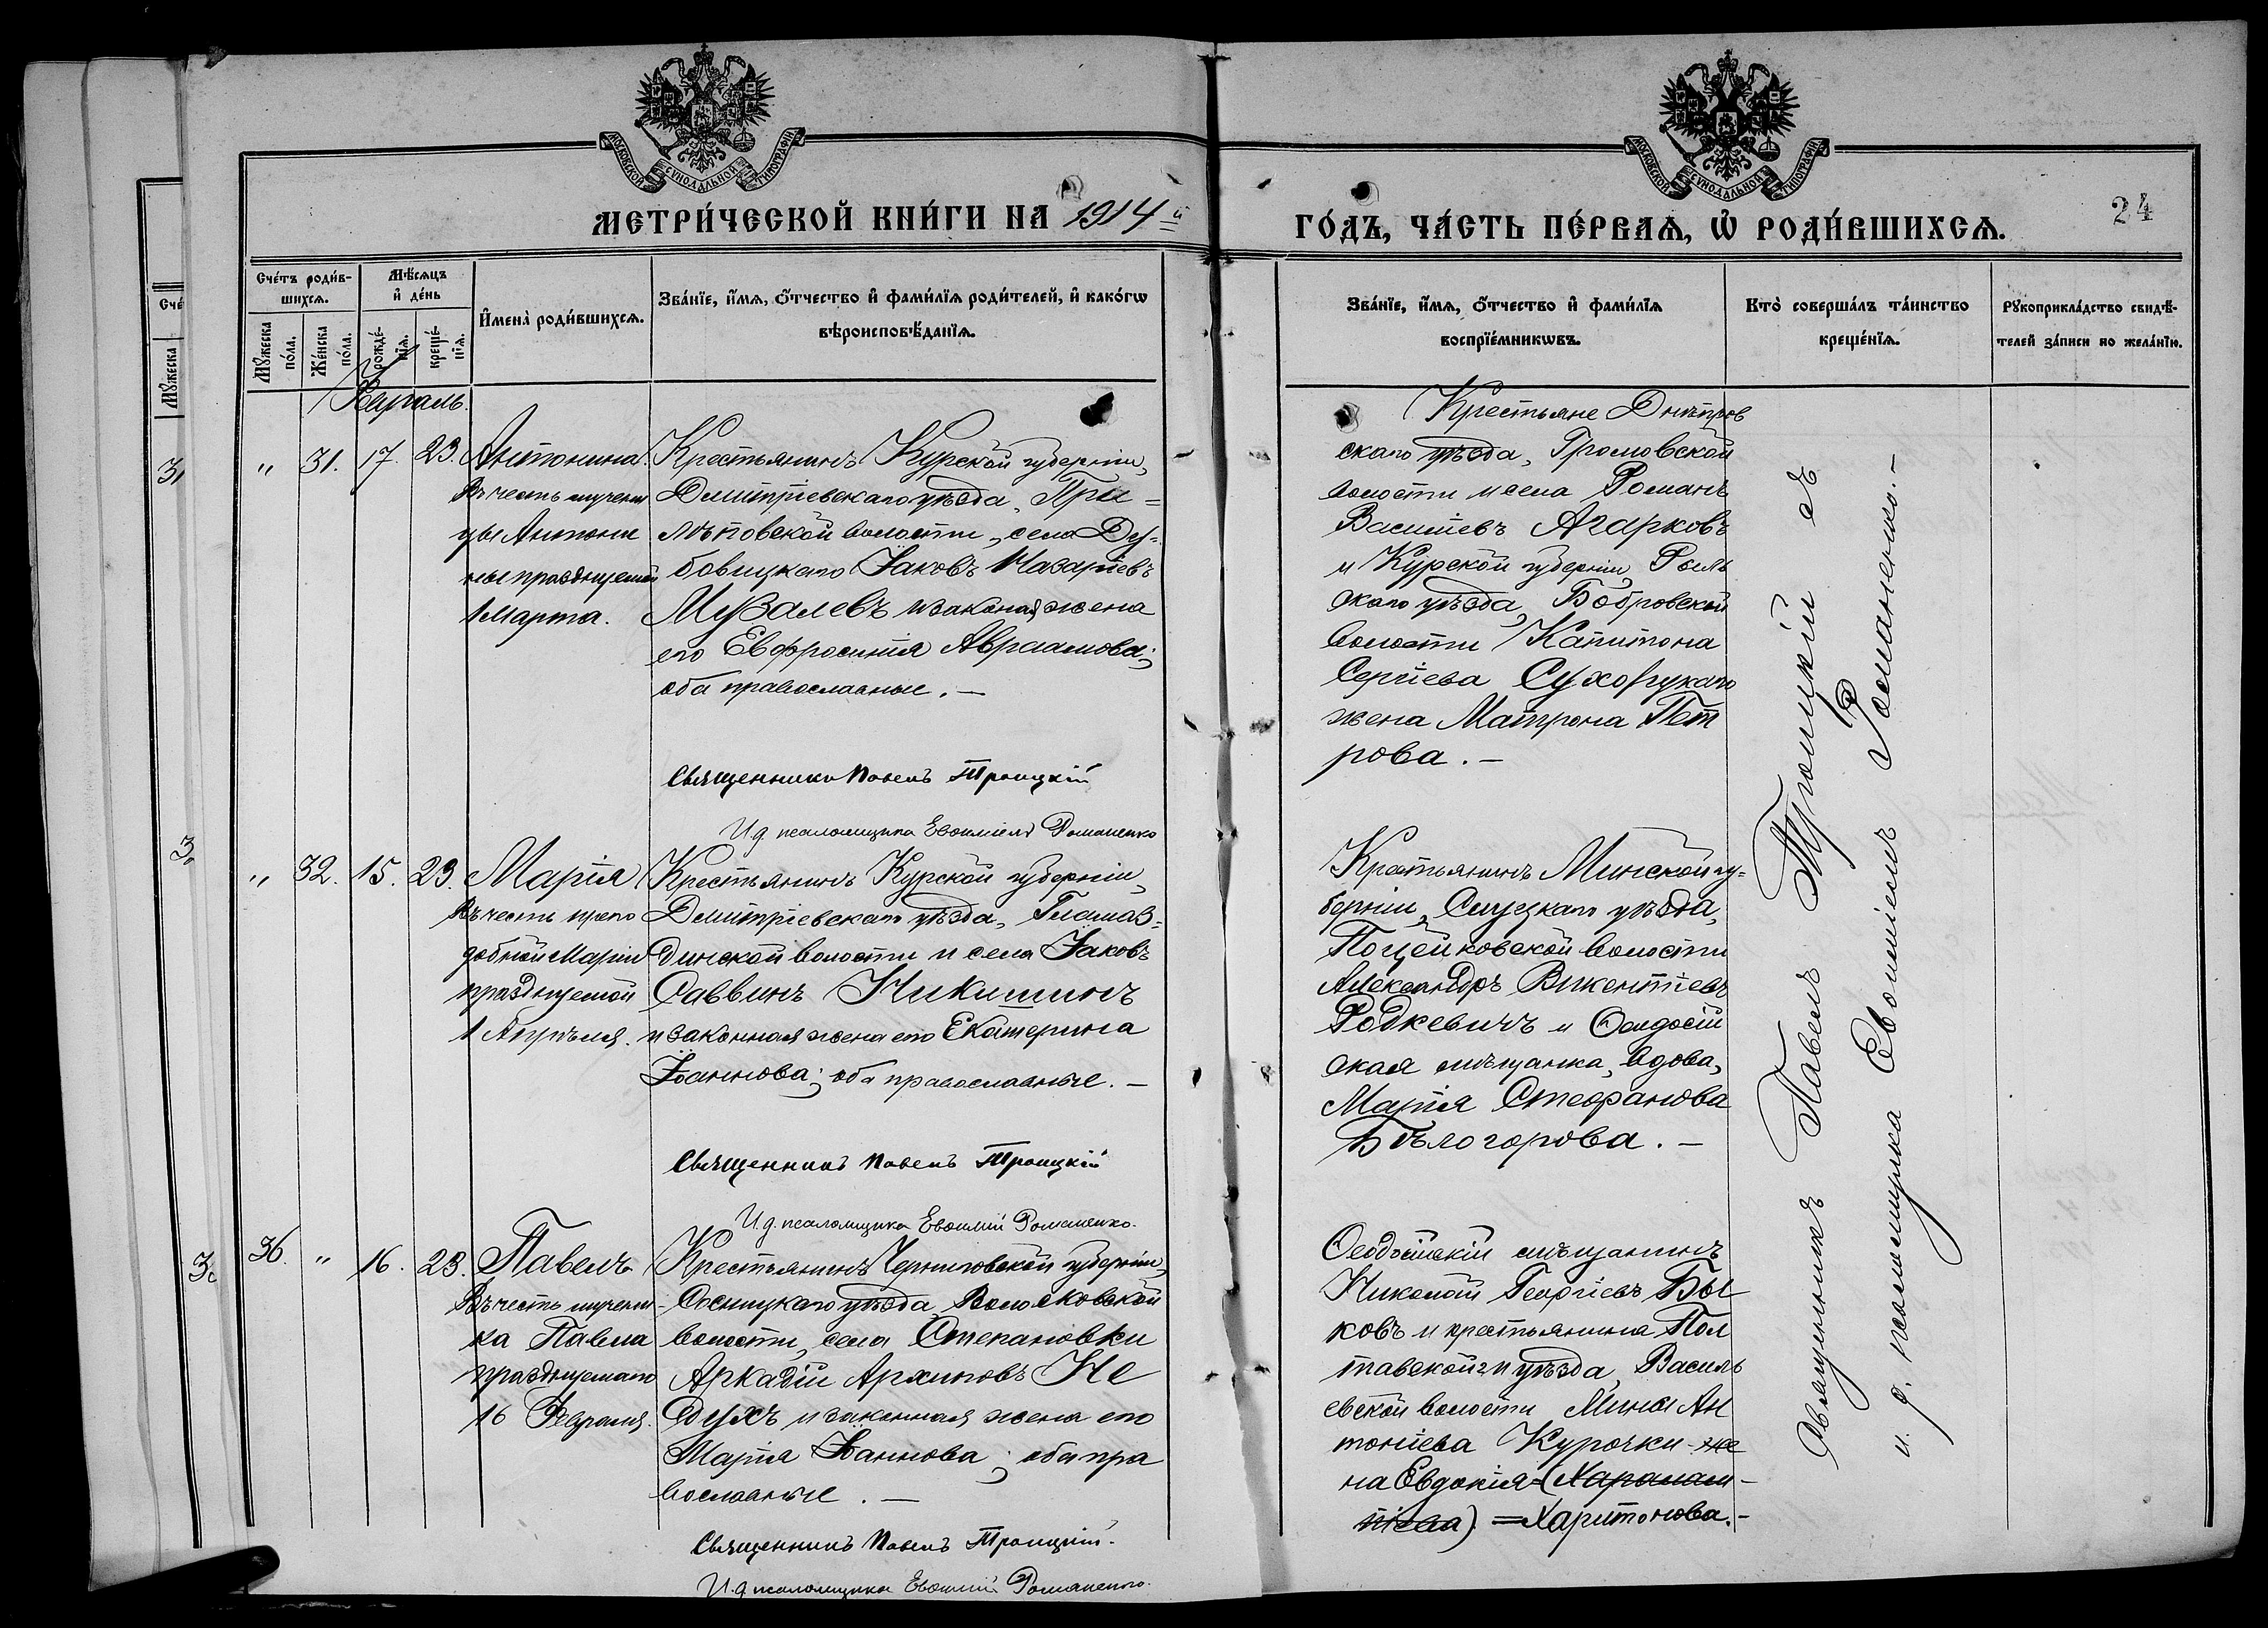 МОСКОВСКОЙ СУНОДАЛЬНОЙ ТИПОГРАФІИ
МОСКОВСКОЙ СУНОДАЛЬНОЙ ТИПОГРАФІИ
МЕТРИ́ЧЕСКОЙ КНИ́ГИ НА 1914 й
ГО́ДЪ, ЧА́СТЬ ПЕ́РВАѦ, Ѡ҆ РОДИ́ВШИХСѦ.
24
Сче́тъ роди́в-
шихсѧ.
Мꙋжеска
по́ла.
Же́нска
по́ла.
Мѣ́сѧцъ
и҆ де́нь
рожде́-
нїѧ.
креще́-
нїѧ.
И҆мена̀ роди́вшихсѧ.
Зва́нїе, и҆́мѧ, ѻ҆́тчество и҆ фами́лїѧ роди́телей, и҆ како́гѡ
вѣроисповѣ́данїѧ.
Зва́нїе, и҆́мѧ, ѻ҆́тчество и҆ фами́лїѧ
воспрїе́мникѡвъ.
Кто̀ соверша́лъ та́инство
креще́нїѧ.
Рꙋкоприкла́дство свидѣ́-
телей за́писи по жела́нїю.
Февраль.
" 31. 17. 23. Антонина.
Въ честь мучени
цы Антони
ны празднуемой
1 Марта.
Крестьянинъ Курской губерніи,
Дмитріевскаго уѣзда, При-
лѣповской волости, села Ду-
бовицкаго Іаковъ Назаріевъ
Музалевъ и законая жена
его Евфросинія Авраамова;
оба православные. —
Священникъ Павелъ Троицкій
И. д. псаломщика Евѳимій Романенко
Крестьяне Днѣпров
скаго уѣзда, Громовской
волости и села Романъ
Васильевъ Агарковъ
и Курской губерніи, Рыль
скаго уѣзда, Бобровской
волости Капитона
Сергіева
жена Матрона Пет
рова. —
" 32. 15. 23. Марія
Въ честь препо
добной Маріи
празднуемой
1 Апрѣля.
Крестьянинъ Курской губерніи,
Дмитріевскаго уѣзда, Гламаз-
динской волости и села Іаковъ
Саввинъ Никишинъ
и законная жена его Екатерина
Іоаннова; оба православные. —
Священникъ Павелъ Троицкій
И. д. псаломщика Евѳимій Романенко.
Крестьянинъ Минской гу-
берніи, Слуцкаго уѣзда,
Поцейковской волости
Александръ Викентіевъ
Родкевичъ и Ѳеодосій
ская мѣщанка, вдова,
Марія Стефанова
Бѣлогорова. —
36. " 16. 23. Павелъ
Въ честь мучени-
ка Павла
празднуемаго
16 Февраля.
Крестьянинъ Черниговской губерніи,
Сосницкаго уѣзда, Волосковской
волости, села Степановки
Аркадій Архиповъ Не
духъ и законная жена его
Марія Іоаннова; оба пра
вославные. —
Священникъ Павелъ Троицкій.
И. д. псаломщика Евѳимій Романенко.
Ѳеодосійскій мѣщанинъ
Николай Георгіевъ Бы
ковъ и крестьянина Пол
тавской г. и уѣзда, Василь
евской волости Мины Ан
тоніева Курочки — же
на Евдокія = (Харалам-
піева) = Харитонова. —
Священникъ Павелъ Троицкій съ
и. д. псаломщика Евѳиміемъ Романенко. —